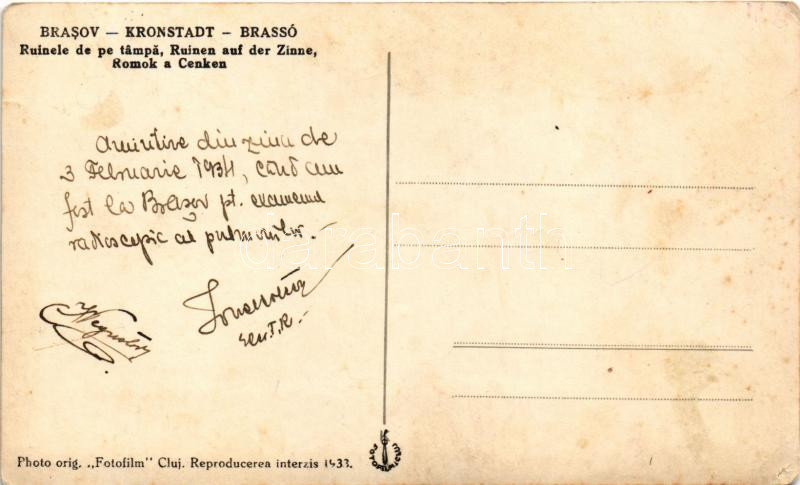 BRAȘOV — KRONSTADT – BRASSÓ
Ruinele de pe tâmpă, Ruinen auf der Zinne,
Romok a Cenken
Amintire din ziua de
3 Februarie 1934, când am
fost la Brașov pt. examenul
radioscopic al pulmonilor.—
darabanth
Photo orig. „Fotofilm" Cluj. Reproducerea interzis 1933.
FOTOFILM CLUJ